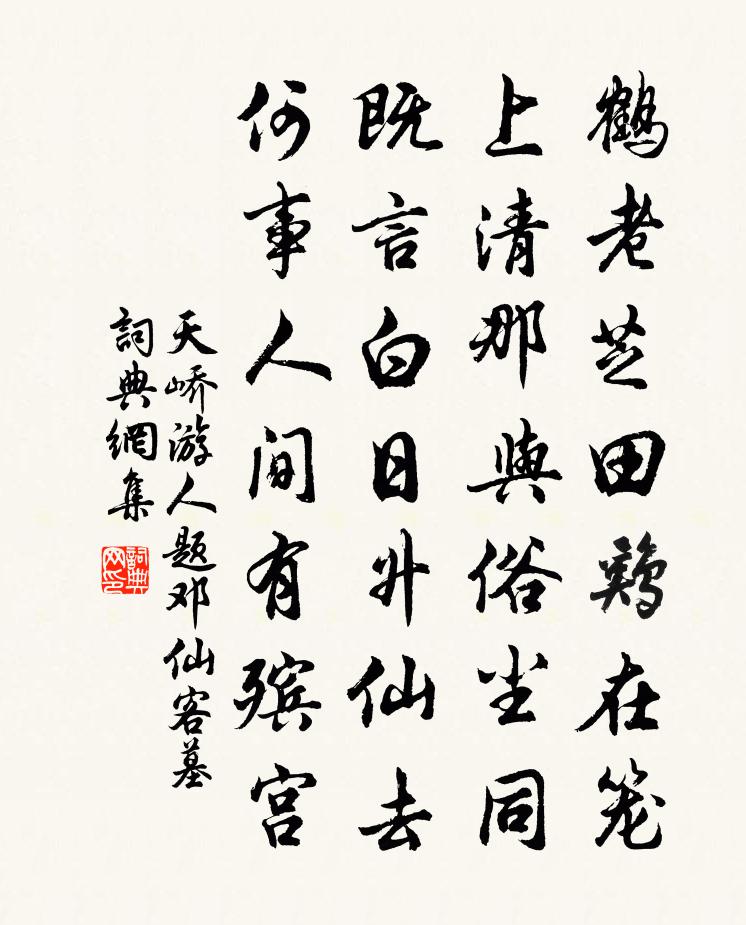 鶴老芝田鷄在笼
上清那與俗尘同
既言白日升仙去
何事人间有殡宫
天峤游人题邓仙客墓
詞典網集
詞典网印